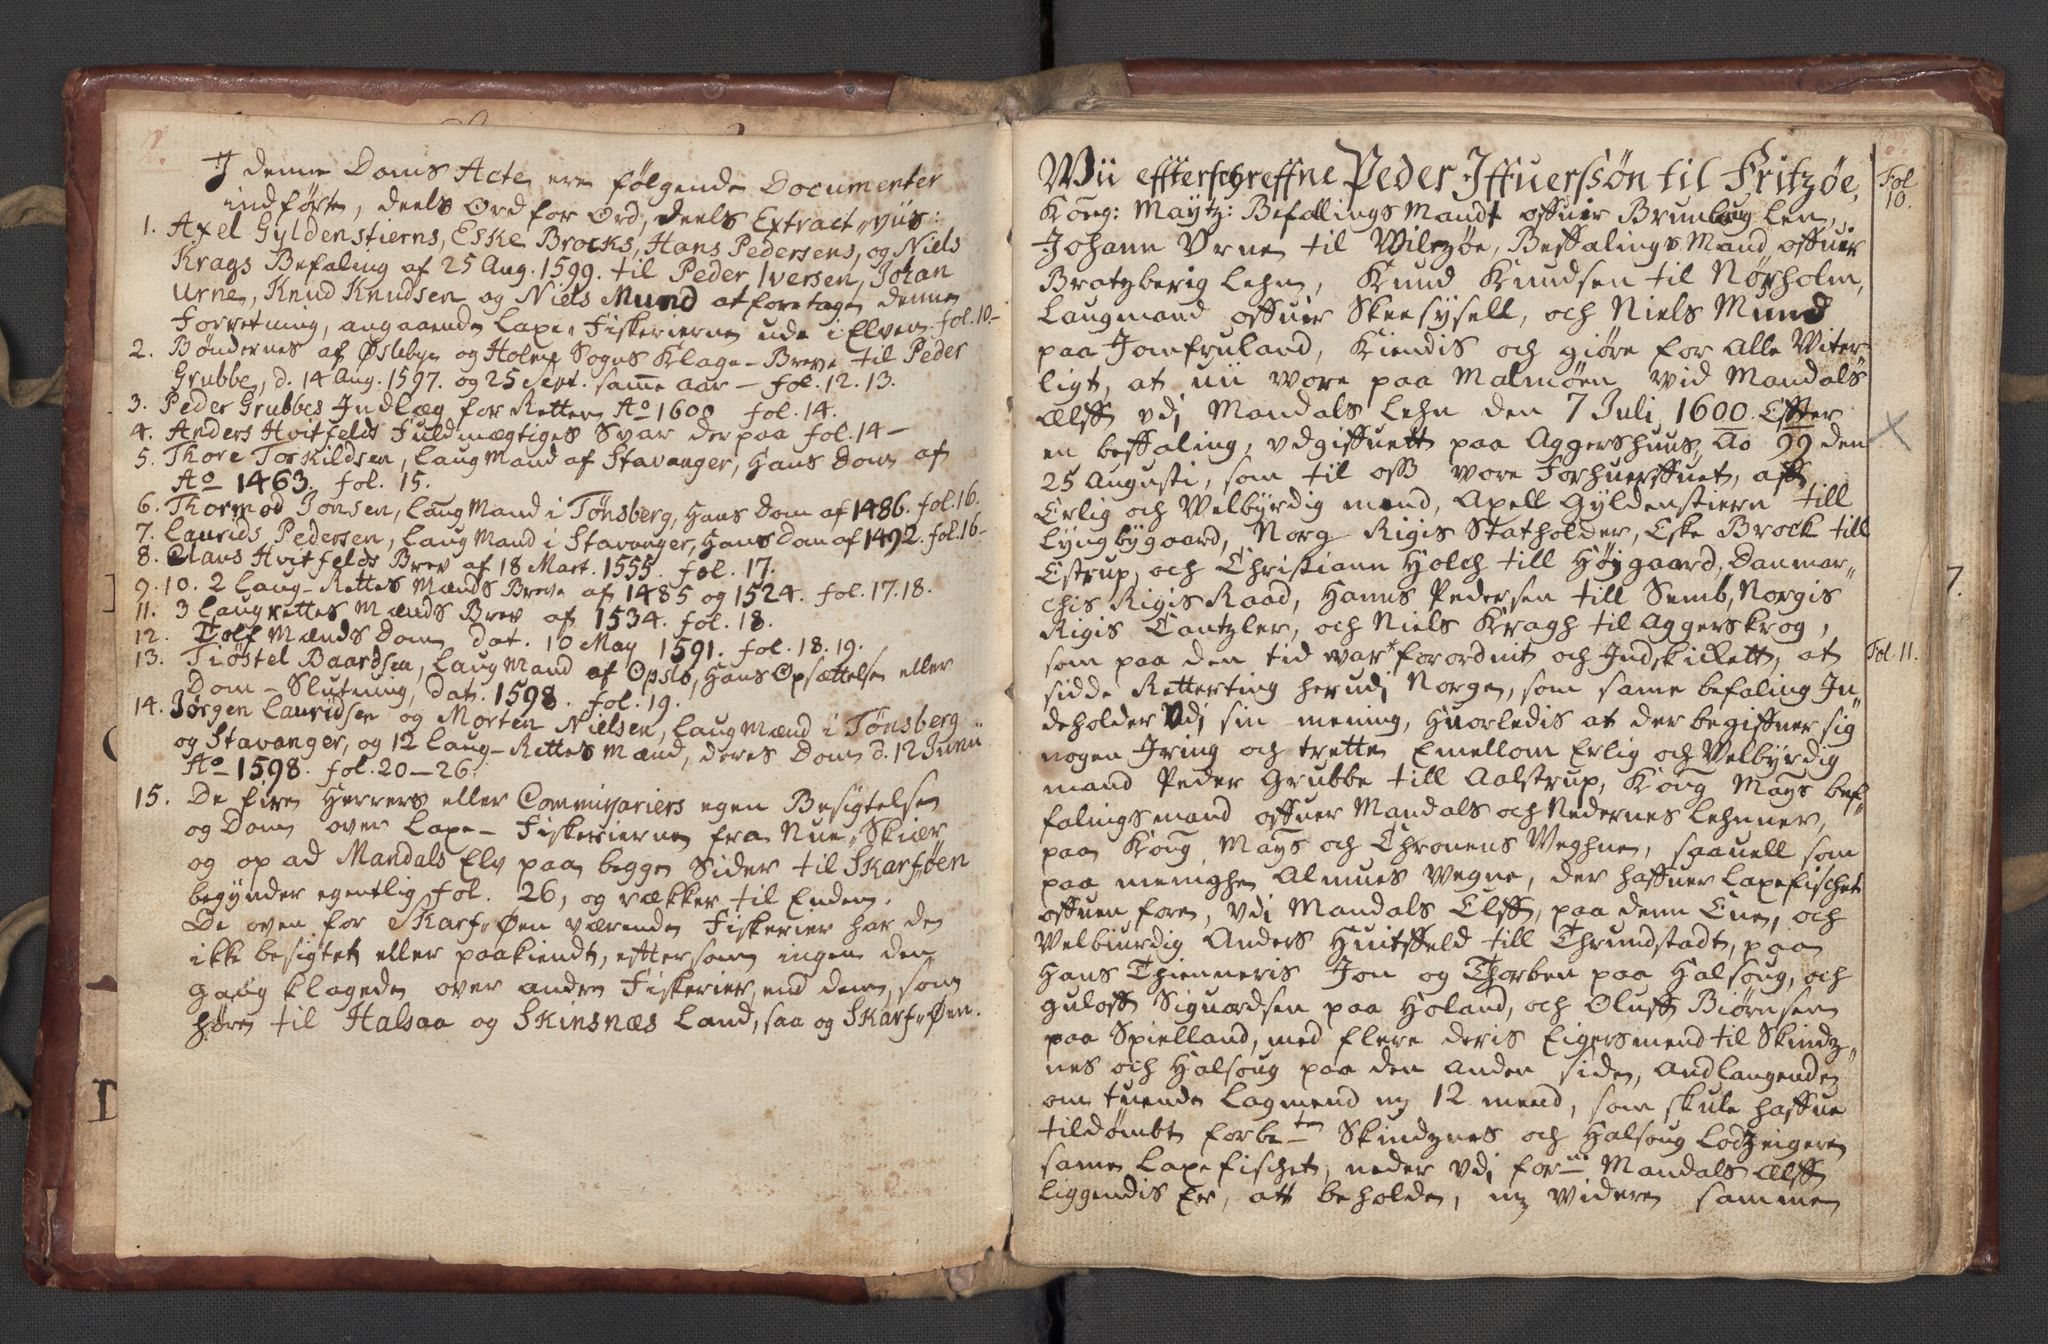 I denne Doms Acte ere følgende Documenter
indførte, deels Ord for Ord, deels Extract-viis:
1. Axel Gyldenstierns, Eske Brocks, Hans Pedersens, og Niels
Krags Befaling af 25 Aug. 1599. til Peder Iversen, Johan
Urne, Knud Knudsen og Niels Mund at foretage denne
Forretning, angaaende Laxe-Fiskerierne ude i Elven. fol. 10.-
2. Bøndernes af Øslebye og Holme Sogns Klage-Breve til Peder
Grubbe, d. 14 Aug. 1597. og 25 Sept. samme aar - fol. 12. 13.
3. Peder Grubbes Indlæg for Retten Ao 1600 fol. 14.
4. Anders Hvitfelds Fuldmægtiges Svar derpaa fol. 14-
5. Thore Torkildsen, LaugMand af Stavanger, Hans Dom af
Ao 1463. fol. 15.
6. Thormod Jonsen, LaugMand i Tønsberg, Hans Dom af 1486. fol. 16.
7. Laurids Pedersen, LaugMand i Stavanger, Hans Dom af 1492. fol. 16-
8. Claus Hvitfelds Brev af 18 Mart. 1555. fol. 17.
9. 10. 2 Laug-Rettes Mænds Breve af 1485 og 1524. fol. 17. 18.
11. 3 Laugrettes Mænds Brev af 1534. fol. 18.
12. Tolf Mænds Dom, dat. 10 May 1591. fol. 18. 19.
13. Tiøstel Baardsen, LaugMand af Opslo, Hans Opsættelse eller
Dom-Slutning, dat. 1598. fol. 19.
14. Jørgen Lauridsen og Morten Nielsen, LaugMænd i Tønsberg
og Stavanger, og 12 Laug-Rettes Mænd, deres Dom d. 12 Junii
Ao 1598. fol. 20-26.
15. De fire Herrers eller Commissariers egen Besigtelse
og Dom over Laxe-Fiskerierne fra Nue-Skiær
og op ad Mandals Elv paa begge Sider til Skarføen
begynder egentlig fol. 26, og rækker til Enden.
De oven for Skarf-Øen værende Fiskerier har de
ikke besigtet eller paakiendt, eftersom ingen den
gang klagede over andre Fiskerier, end dem, som
høre til Halsaa og Skinsnæs Land, saa og Skarf-Øen.
Wii effterschreffne Peder Iffuerssøn til Fritzøe,
Fol.
10.
Kong: Maytz: Befallings Mandt offuer Brunlaug Len,
Johann Urne til Wilszøe, Beffalings Mand offuer
Bratzberig Lehn, Knud Knudsen til Nørholm,
Laugmand offuer Skeesysell, och Niels Mund
paa Jomfruland, Kiendis och giøre for Alle Witer-
ligt, at vii wore paa Malmøen wid Mandals
Elff vdj Mandals Lehn den 7 Juli 1600. Efter
en beffaling, vdgiffuett paa Aggershuus, Ao 99 den
25 Augusti, som til oss wore Forhuerffuet, aff
Erlig och Welbyrdig mend, Axell Gyldenstiern till
Lyngbygaard, Norg Rigis Statholder, Eske Brock till
Estrup, och Christiann Holch till Høygaard, Danmar-
chis Rigis Raad, Hanns Pedersen till Semb, Norgis
7.
Rigis Cantzler, och Niels Kragh til Aggerskrog,
som paa den tid war* forordnit och Indskickett, at
Fol. 11.
sidde Retterting her udj Norgen, som same befaling In-
deholder Vdj sin mening, Huorledis at der begiffuer sig
nogen Jring och trette Emellom Erlig och Welbyrdig
mand Peder Grubbe till Aalstrup, Kong Mays bef-
falingsmand offuer Mandals och Nedernes Lehnner,
paa Kong Mays och Chronens Weghne, saauell som
paa menighe Almues Wegne, der haffuer Laxefischet
offuen fore, Vdi Mandals Elff, paa denn Ene, och
Velbiurdig Anders Huitffeld till Thrundstadt, paa
Hans Thienneris Jon og Thorben paa Halsoug, och
Guloff Siguardsen paa Holand, och Oluff Biørnsen
paa Spielland, med flere deris Eigersmend til Skindz-
nes och Halsoug paa den anden siden, Andlangende
om tuende Lagmend og 12 mend, som skule haffue
tildømbt forbe-te Skindznes och Halsoug Lodzeigere
same Laxefischet, neder vdj for-ne Mandals Elff
liggendis Er, att beholde, og videre sammen